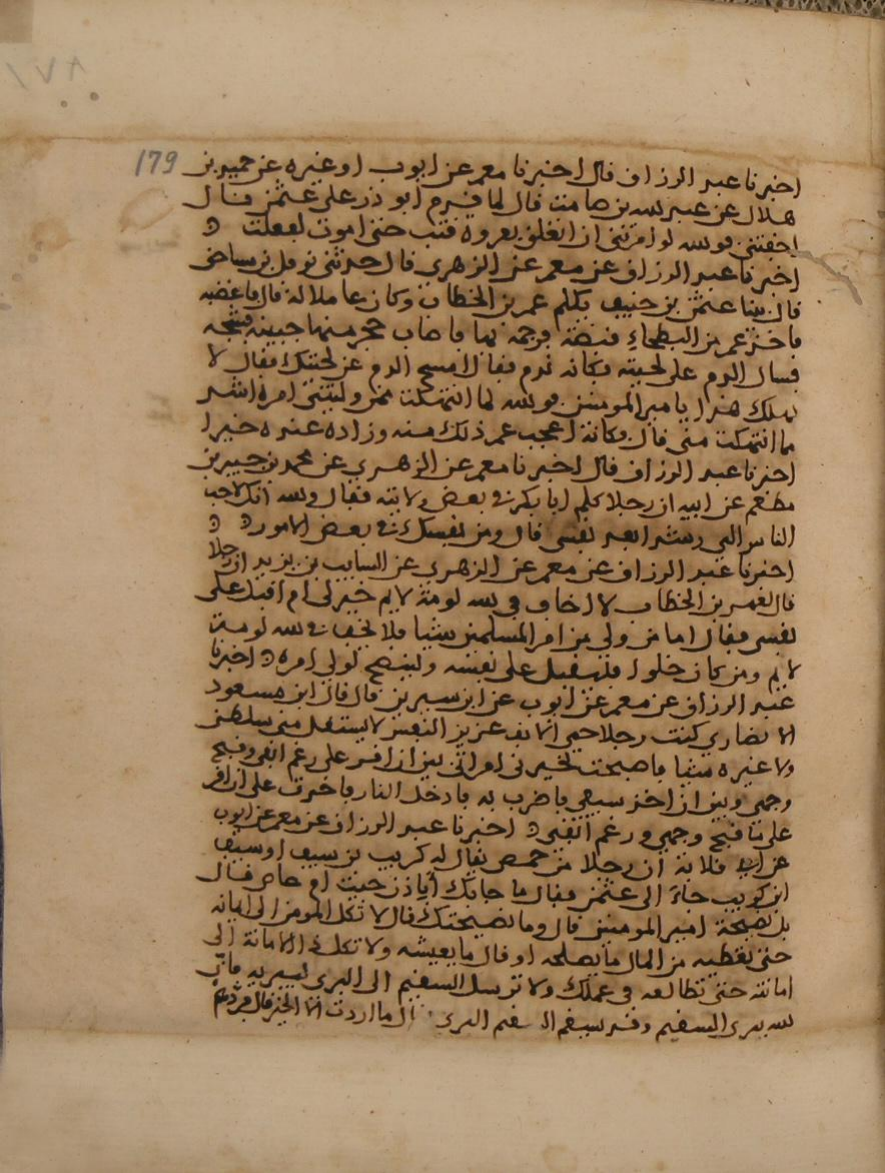 179
اخبرنا عبد الرزاق قال اخبرنا معمر عن ايوب او غيره عن حميد بن
هلال عن عبد الله بن صامت قال لما قدم ابو ذر على عثمن قال
اخفتني فوالله لو امرتني ان اتعلق بعروة قتب حتى اموت لفعلت
اخبرنا عبد الرزاق عن معمر عن الزهري قال حدثني نوفل بن مساحق
قال بينا عثمن بن حنيف يكلم عمر بن الخطاب وكان عاملا له قال فاغضبه
فاخذ عمر من البطحاء قبضة فرجمه بها فاصاب حجر منها جبينه فشجه
فسال الدم على لحيته فكانه ندم فقال امسح الدم عن لحيتك فقال لا
يهلك هذا يا مير المومنين فوالله لما انتهكت ممن وليتني امره اشد
مما انتهكت مني قال فكانه اعجب عمر ذلك منه وزاده عنده خيرا
اخبرنا عبد الرزاق قال اخبرنا معمر عن الزهري عن محمد بن جبير بن
مطعم عن ابيه ان رجلا كلم ابا بكر في بعض ولايته فقال والله انك لاحب
الناس الي رشدا بعد نفسي قال ومن نفسك في بعض الامور
اخبرنا عبد الرزاق عن معمر عن الزهري عن السايب بن يزيد ان رجلا
قال لعمر بن الخطاب لا اخاف في الله لومة لايم خير لي ام اقبل على
نفسي فقال اما من ولي من امر المسلمين شيا فلا يخف في الله لومة
لايم ومن كان خلوا فليقبل على نفسه ولينصح لولي امره اخبرنا
عبد الرزاق عن معمر عن ايوب عن ابن سيرين قال قال ابن مسعود
الانصاري كنت رجلا حمي الانف عزيز النفس لا يستقل مني سلطن
ولا غيره شيا فاصبحت تخيرني امراتي بين ان اقر على رغم انفي وقبح
وجهي وبين ان اخذ سيفي فاضرب به فادخل النار فاخترت على ان اقر
على قبح وجهي ورغم انفي اخبرنا عبد الرزاق عن معمر عن ايوب
عن ابي قلابة ان رجلا من حمص يقال له كريب بن سيف او سيف
ابن كريب جاء الى عثمن فقال ما جابك اباذن جيت ام عاص قال
بل نصيحة امير المومنين قال وما نصيحتك قال لا تكل المومن الى ايمانه
حتى تعطيه من المال ما يصلحه او قال ما يعيشه ولا تكل ذا الامانة الى
امانته حتى تطالعه في عملك ولا ترسل السقيم الى البري ليبريه فان
الله يبري السقيم وقد يسقم السقيم البري قال ما اردت الا الخير قال فردهم